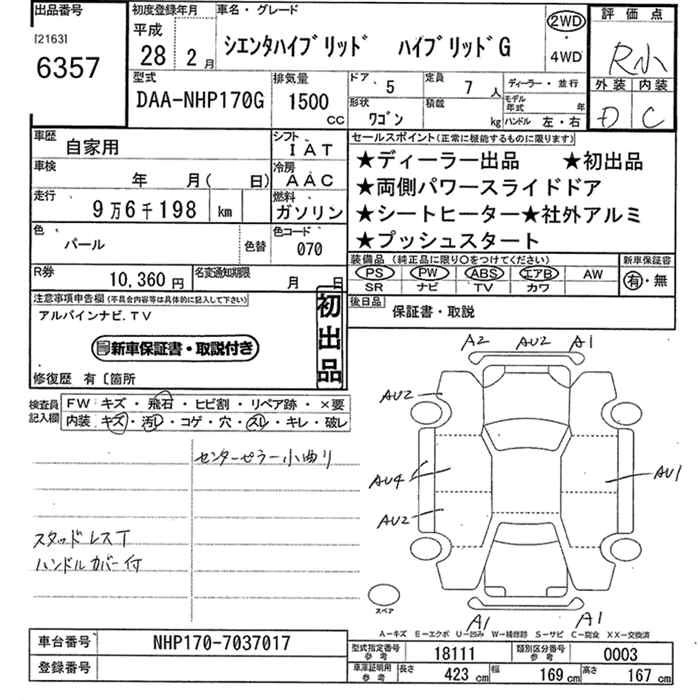 出品番号 初度登録年月 車名・グレード 評価点
[2163]
6357
平成 28 2月
シエンタハイブリッド ハイブリッドG
2WD・4WD
R小
外装 内装
D C
型式 DAA-NHP170G
排気量 1500 cc
ドア 5 定員 7人
形状 ワゴン 積載 kg
ディーラー・並行
モデル年式 年
ハンドル 左・右
車歴 自家用
シフト IAT
車検 年 月( 日)
冷房 AAC
走行 9万6千198 km
燃料 ガソリン
色 パール 色替
色コード 070
R券 10,360円
名変通知期限 月 日
セールスポイント(正常に機能するものに限ります)
★ディーラー出品 ★初出品
★両側パワースライドドア
★シートヒーター★社外アルミ
★プッシュスタート
装備品(純正品に限り○をつけてください) 新車保証書
PS PW ABS エアB AW
SR ナビ TV カワ
有・無
後日品 保証書・取説
注意事項申告欄(不具合内容等は具体的に記入して下さい)
アルパインナビ.TV
新車保証書・取説付き
初出品
修復歴 有〔箇所
検査員記入欄
FW キズ・飛石・ヒビ割・リペア跡・×要
内装 キズ・汚レ・コゲ・穴・スレ・キレ・破レ
センターピラー小曲り
スタッドレスT
ハンドルカバー付
A2 AU2 A1
AU2
AU4
AU1
AU2
スペア
A1 A1
A−キズ E−エクボ U−凹み W−補修跡 S−サビ C−腐食 XX−交換済
車台番号 NHP170-7037017
登録番号
型式指定番号 参考 18111
類別区分番号 参考 0003
車庫証明用 参考 長さ 423 cm 幅 169 cm 高さ 167 cm